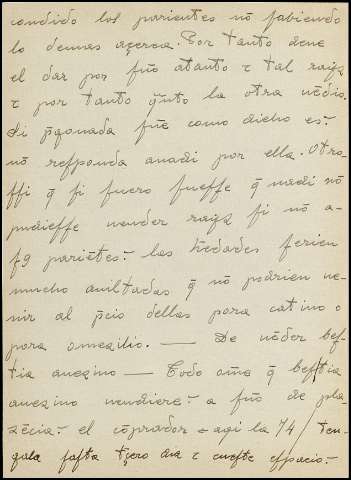 condido los parientes nõ sabiendo
lo demas açerca. Por tanto deue
el dar por fuõ atanto τ tal raiz
τ por tanto q̃nto la otra nẽdio.
Si pẽonada fue como dicho es:-
nõ responda a nadi por ella. Otro-
ssi q̃ si fuero fuesse q̃ nadi nõ
pudiesse uender raiz si nõ a-
sus pariẽtes:- las hedades serien
mucho auiltadas q̃ nõ podrien ue-
nir al p̃cio dellas pora catiuo o
pora omezilio. — De uẽder bes-
tia auezino — Todo ome q̃ bestia
auezino uendiere:- a fuõ de pla-
zẽcia:- el cõprador aqi la 74/ ten-
gala fasta t̃çero dia τ cueste espacio:-